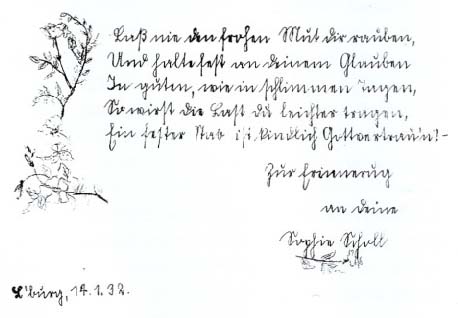 Laß nie den frohen Mut dir rauben,
Und halte fest an deinem Glauben
In guten, wie in schlimmen Tagen,
So wirst die Last du leichter tragen,
Ein fester Stab ist kindlich Gottvertrau'n! -
Zur Erinnerug
an deine
Sophie Scholl
L'burg, 14.1.32.